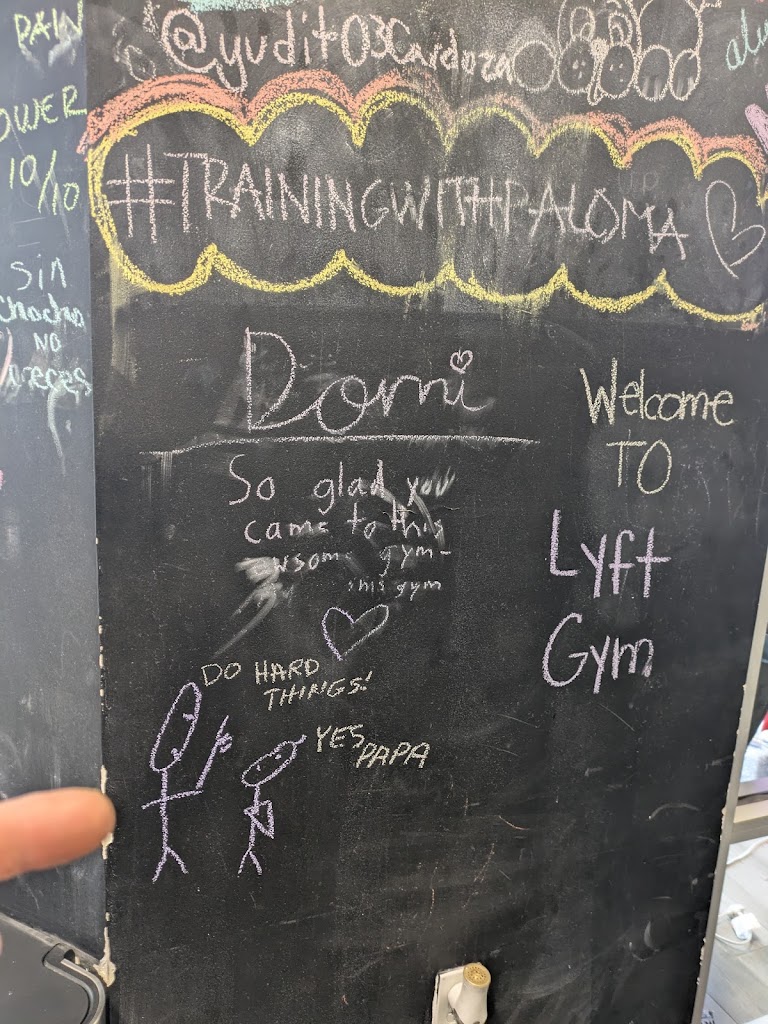 PAIN
OWER
10/10
Sin
No
@yudit03Cardoza
#TRAININGWITHPALOMA
Dorni
So glad you
came to this
wsome gym-
this gym
Welcome
TO
Lyft
Gym
DO HARD
THINGS!
YES
PAPA